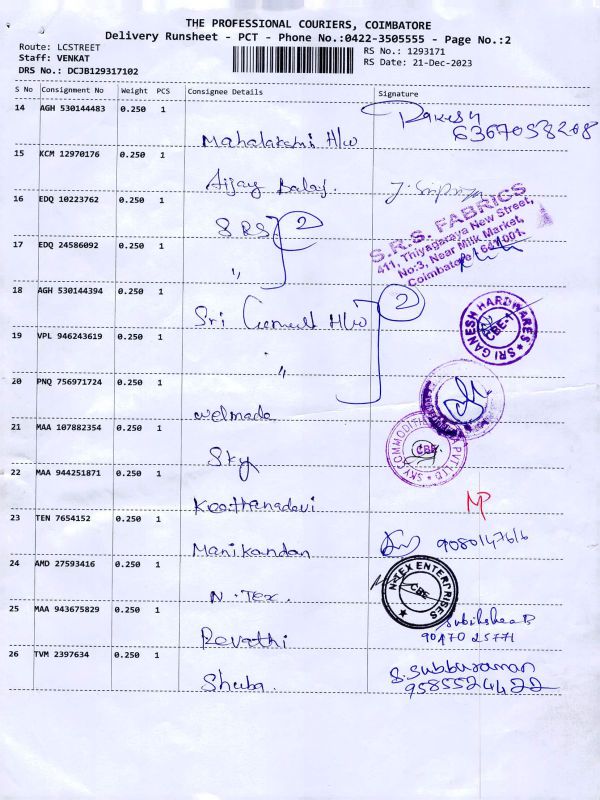 THE PROFESSIONAL COURIERS, COIMBATORE
Delivery Runsheet - PCT - Phone No.:0422-3505555 - Page No.:2
Route: LCSTREET
RS No.: 1293171
Staff: VENKAT
RS Date: 21-Dec-2023
DRS No.: DCJB129317102
S No Consignment No Weight PCS Consignee Details Signature
14 AGH 530144483 0.250 1 Mahalakshmi H/w Rakesh
6367058208
15 KCM 12970176 0.250 1 Aijay Balaj.
16 EDQ 10223762 0.250 1 SRS 2
S.R.S. FABRICS
411, Thiyagaraya New Street,
No:3, Near Milk Market,
Coimbatore - 641001.
17 EDQ 24586092 0.250 1 "
18 AGH 530144394 0.250 1 Sri H/w 2
SRI GANESH HARDWARES
CBE-1
19 VPL 946243619 0.250 1 "
20 PNQ 756971724 0.250 1 welmade
21 MAA 107882354 0.250 1 Sky
SKY COMMODITI PVT LTD
CBE
22 MAA 944251871 0.250 1 Keerthanadevi MP
23 TEN 7654152 0.250 1 Manikandan
24 AMD 27593416 0.250 1 N. Tex.
N-TEX ENTERPRISES
CBE
25 MAA 943675829 0.250 1 Revathi
26 TVM 2397634 0.250 1 Shuba. S. Subburaman
9585524422